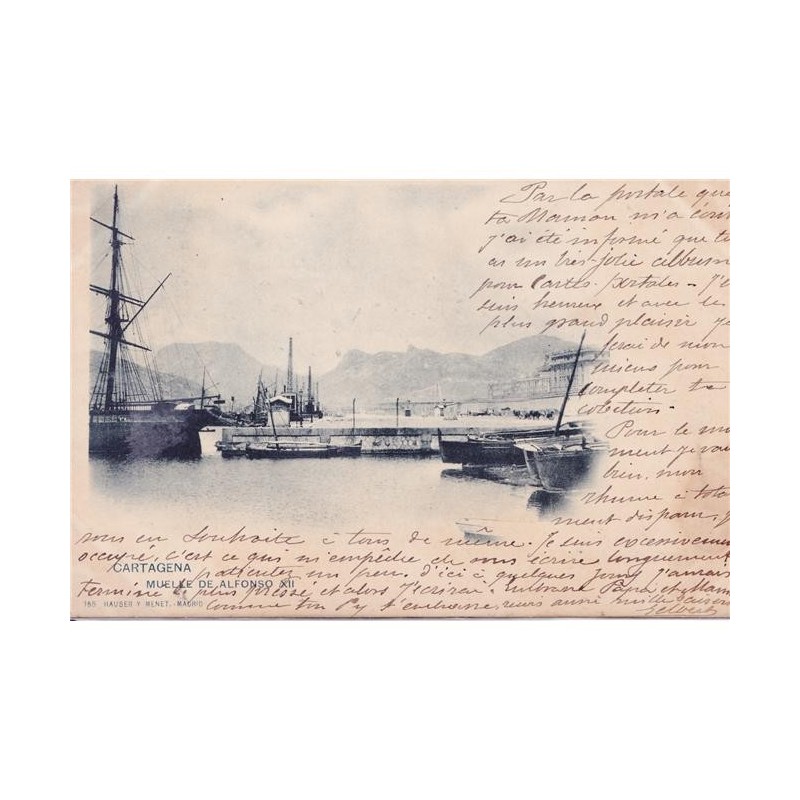 Par la postale que
ta Maman m'a écri
j'ai été informé que tu
as un très jolie album
pour Cartes-postales - J'e
suis heureux et avec le
plus grand plaisir je
ferai de mon
miens pour
completer ta
colection.
Pour le mo
ment je vai
bien, mon
rhume à tota
ment disparu, j
vous en souhaite à tous de même. Je suis excessivemen
occupé, c'est ce qui m'empêche de vous écrire longuement
patienter un peu. d'ici à quelques jours j'aurais
terminé plus pressé et alors j'écrirai. Embrasse Papa et Mam
comme ton Py t'embrasse, reçois aussi mille baisers
CARTAGENA
MUELLE DE ALFONSO XII
HAUSER Y MENET.-MADRID